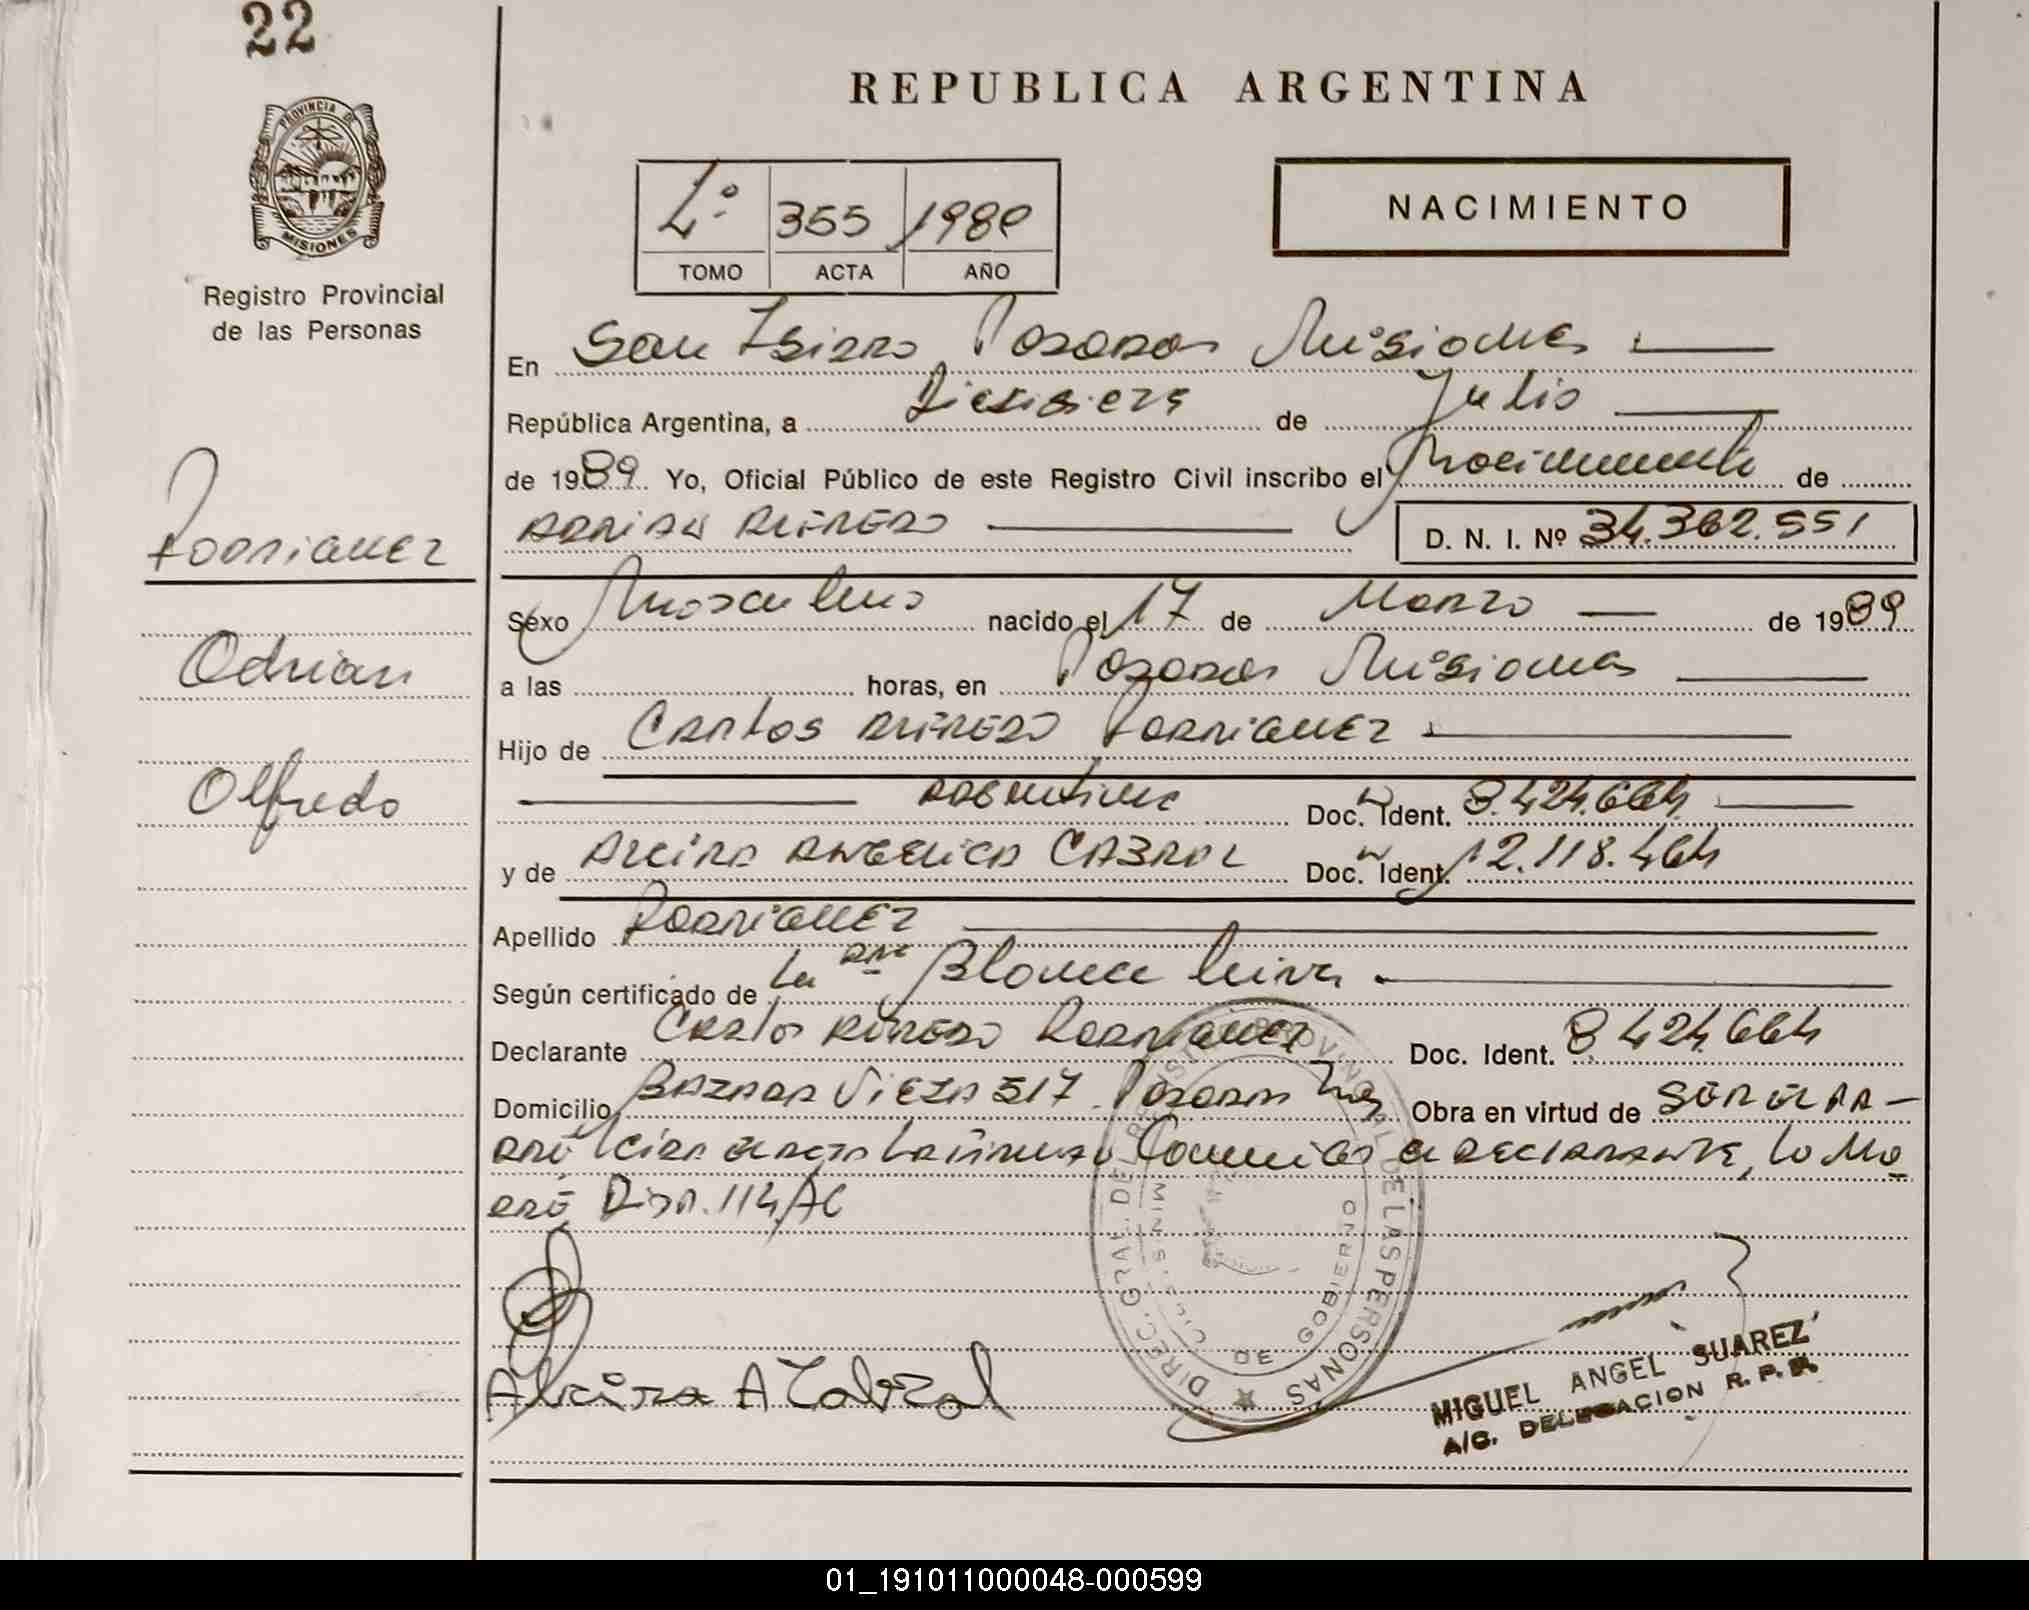 22
REPUBLICA ARGENTINA
PROVINCIA DE
MISIONES
Registro Provincial
de las Personas
355 1989
TOMO ACTA AÑO
NACIMIENTO
En San Isidro, Posadas Misiones
República Argentina, a Diecisiete de Julio
de 1989. Yo, Oficial Público de este Registro Civil inscribo el Nacimiento de
ADRIAN ALFREDO D. N. I. Nº 34.362.551
Rodriguez
Adrian
Alfredo
Sexo Masculino nacido el 17 de Marzo de 1989
a las horas, en Posadas Misiones
Hijo de Carlos Alfredo Rodriguez
Argentina Doc. Ident. 8.424.664
y de Alcira Angelica CABRAL Doc. Ident. 12.118.464
Apellido Rodriguez
Según certificado de La Blanca
Declarante Carlos Alfredo Rodriguez Doc. Ident. 8.424.664
Domicilio 517 Posadas Mnes Obra en virtud de
declarante, la Ma
dre Disp. 114/
DIREC. GRAL. DEL REGISTRO PROVINCIAL DE LAS PERSONAS
DE GOBIERNO
Alcira A Cabral
MIGUEL ANGEL SUAREZ
A/C. DELEGACION R. P. P.
01_191011000048-000599